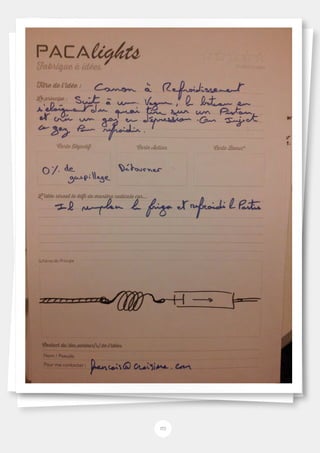 PACAlights
Fabrique à idées
Titre de l'idée : Canon à Refroidissement
Le principe : Suit à une Vague, le bateau en
s'éloignant du quai tire sur un Piston
et crée un gaz en dépression. On Inject
ce gaz Pour refroidir.
Carte Objectif Carte Action Carte Bonus*
0% de Détourner
gaspillage
L'idée résout le défi de manière radicale car...
Il remplace le frigo et refroidi le Pastis
Schéma de Principe
Contact du/des porteur/s/ de l'idées
Nom / Pseudo
Pour me contacter : francois@croisiere.com